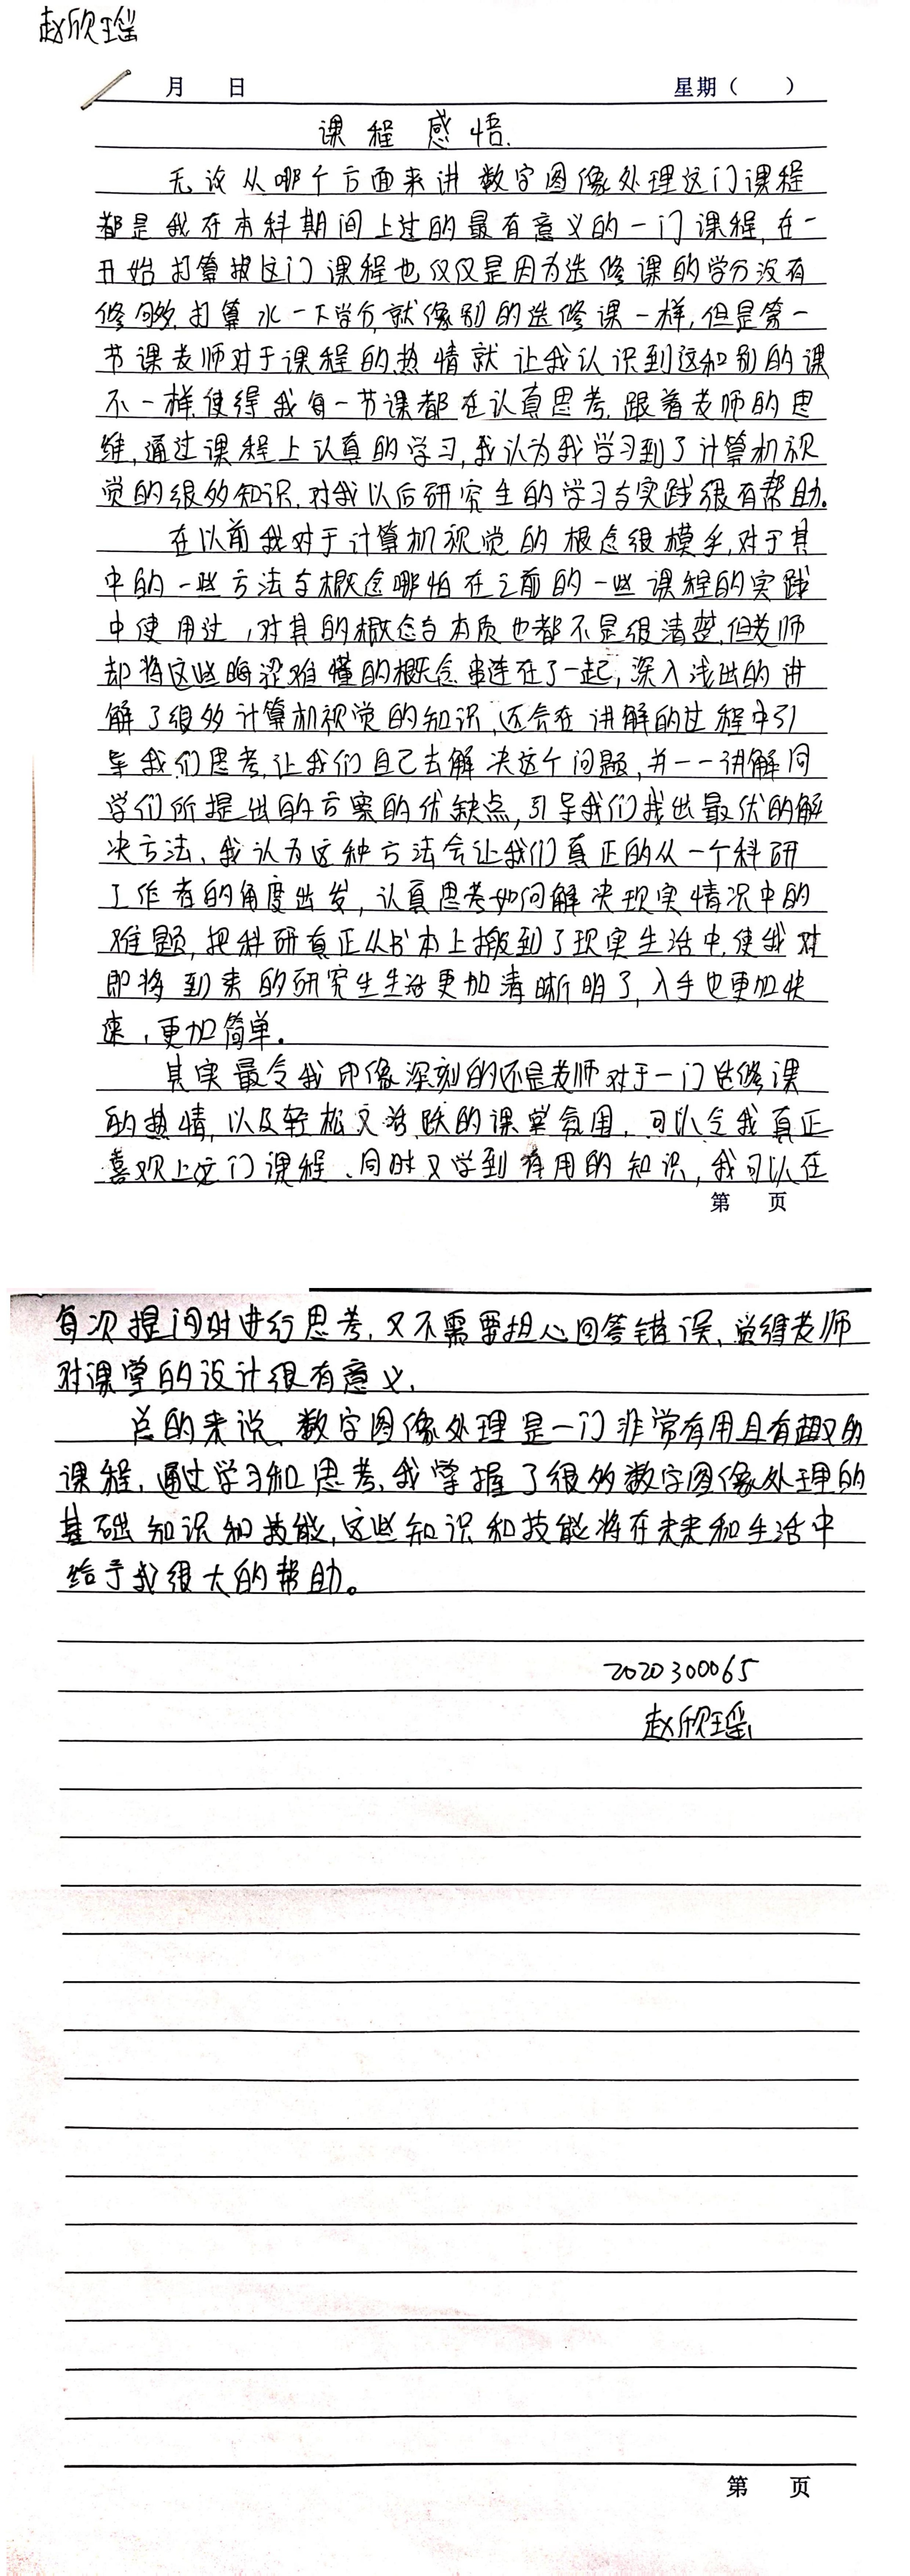 赵欣瑶
月 日 星期( )
课程感悟.
无论从哪个方面来讲数字图像处理这门课程
都是我在本科期间上过的最有意义的一门课程,在一
开始打算报这门课程也仅仅是因为选修课的学分没有
修够,打算水一下学分,就像别的选修课一样,但是第一
节课老师对于课程的热情就让我认识到这和别的课
不一样,使得我每一节课都在认真思考,跟着老师的思
维,通过课程上认真的学习,我认为我学习到了计算机视
觉的很多知识,对我以后研究生的学习与实践很有帮助。
在以前我对于计算机视觉的概念很模乎,对于其
中的一些方法与概念哪怕在之前的一些课程的实践
中使用过,对其的概念与本质也都不是很清楚,但老师
却将这些晦涩难懂的概念串连在了一起,深入浅出的讲
解了很多计算机视觉的知识,还会在讲解的过程中引
导我们思考,让我们自己去解决这个问题,并一一讲解同
学们所提出的方案的优缺点,引导我们找出最优的解
决方法、我认为这种方法会让我们真正的从一个科研
工作者的角度出发,认真思考如何解决现实情况中的
难题,把科研真正从书本上搬到了现实生活中,使我对
即将到来的研究生生活更加清晰明了,入手也更加快
速,更加简单。
其实最令我印像深刻的还是老师对于一门选修课
的热情,以及轻松又活跃的课堂氛围,可以令我真正
喜欢上这门课程、同时又学到有用的知识,我可以在
第 页
每次提问时进行思考,又不需要担心回答错误,觉得老师
对课堂的设计很有意义.
总的来说,数字图像处理是一门非常有用且有趣的
课程,通过学习和思考,我掌握了很多数字图像处理的
基础知识和技能,这些知识和技能将在未来和生活中
给予我很大的帮助。
2020300065
赵欣瑶
第 页